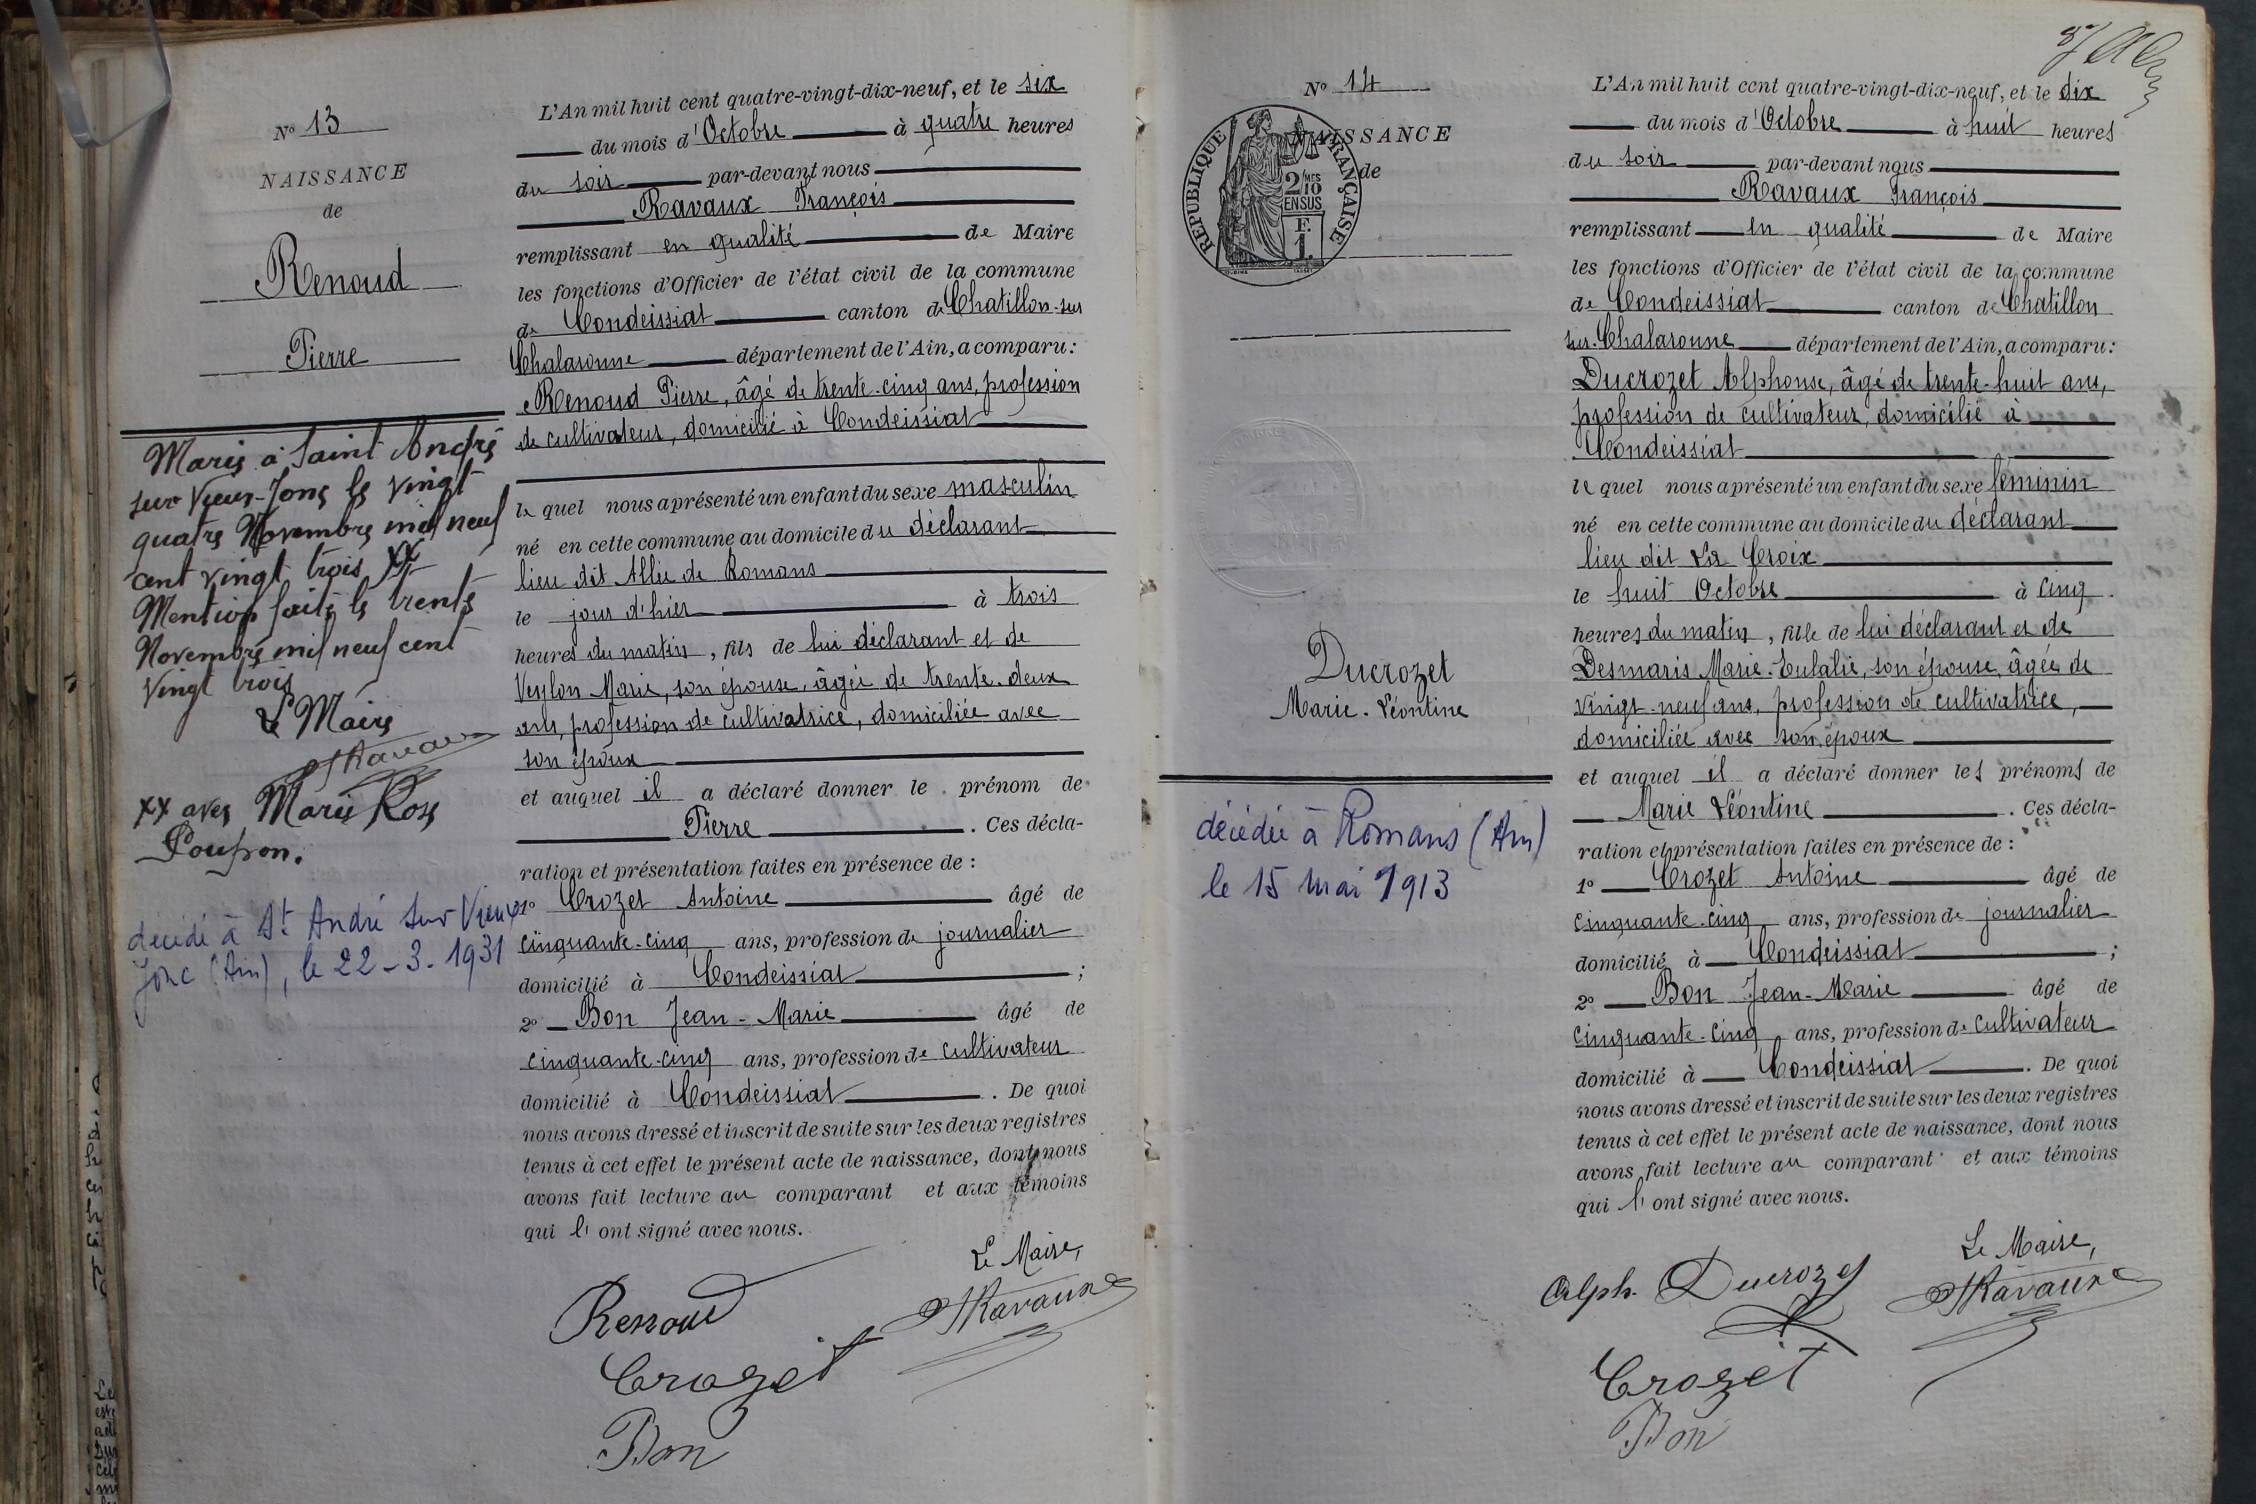 N° 13
NAISSANCE
de
Renoud
Pierre
Marié à Saint André
sur Vieux-Jonc le vingt
quatre Novembre mil neuf
cent vingt trois xx
Mention faite le trente
Novembre mil neuf cent
vingt trois
Le Maire
Ravaux
xx avec Marie Rose
décédé à St André sur Vieux
Jonc (Ain), le 22-3-1931
L'An mil huit cent quatre-vingt-dix-neuf, et le six
du mois d'Octobre à quatre heures
du soir par-devant nous
Ravaux François
remplissant en qualité de Maire
les fonctions d'Officier de l'état civil de la commune
de Condeissiat canton de Chatillon-sur
Chalaronne département de l'Ain, a comparu:
Renoud Pierre, âgé de trente-cinq ans, profession
de cultivateur, domicilié à Condeissiat
lequel nous a présenté un enfant du sexe masculin
né en cette commune au domicile du déclarant
lieu dit Allée de Romans
le jour d'hier à trois
heures du matin, fils de lui déclarant et de
Veylon Marie, son épouse, âgée de trente-deux
ans, profession de cultivatrice, domiciliée avec
son époux
et auquel il a déclaré donner le prénom de
Pierre. Ces décla-
ration et présentation faites en présence de:
1° Crozet Antoine âgé de
cinquante-cinq ans, profession de journalier
domicilié à Condeissiat;
2° Bon Jean-Marie âgé de
cinquante-cinq ans, profession de cultivateur
domicilié à Condeissiat. De quoi
nous avons dressé et inscrit de suite sur les deux registres
tenus à cet effet le présent acte de naissance, dont nous
avons fait lecture au comparant et aux témoins
qui l'ont signé avec nous.
Le Maire,
Renoud
Ravaux
Crozet
Bon
N° 14
NAISSANCE
de
RÉPUBLIQUE FRANÇAISE
2/10MES
EN SUS
F.
1.
Ducrozet
Marie-Léontine
décédée à Romans (Ain)
le 15 mai 1913
L'An mil huit cent quatre-vingt-dix-neuf, et le dix
du mois d'Octobre à huit heures
du soir par-devant nous
Ravaux François
remplissant en qualité de Maire
les fonctions d'Officier de l'état civil de la commune
de Condeissiat canton de Chatillon
sur-Chalaronne département de l'Ain, a comparu:
Ducrozet Alphonse, âgé de trente-huit ans,
profession de cultivateur, domicilié à
Condeissiat
lequel nous a présenté un enfant du sexe féminin
né en cette commune au domicile du déclarant
lieu dit La Croix
le huit Octobre à cinq
heures du matin, fille de lui déclarant et de
Desmaris Marie-Eulalie, son épouse, âgée de
vingt-neuf ans, profession de cultivatrice,
domiciliée avec son époux
et auquel il a déclaré donner les prénoms de
Marie Léontine. Ces décla-
ration et présentation faites en présence de:
1° Crozet Antoine âgé de
cinquante-cinq ans, profession de journalier
domicilié à Condeissiat;
2° Bon Jean-Marie âgé de
cinquante-cinq ans, profession de cultivateur
domicilié à Condeissiat. De quoi
nous avons dressé et inscrit de suite sur les deux registres
tenus à cet effet le présent acte de naissance, dont nous
avons fait lecture au comparant et aux témoins
qui l'ont signé avec nous.
Le Maire,
Alph. Ducrozet
Ravaux
Crozet
Bon